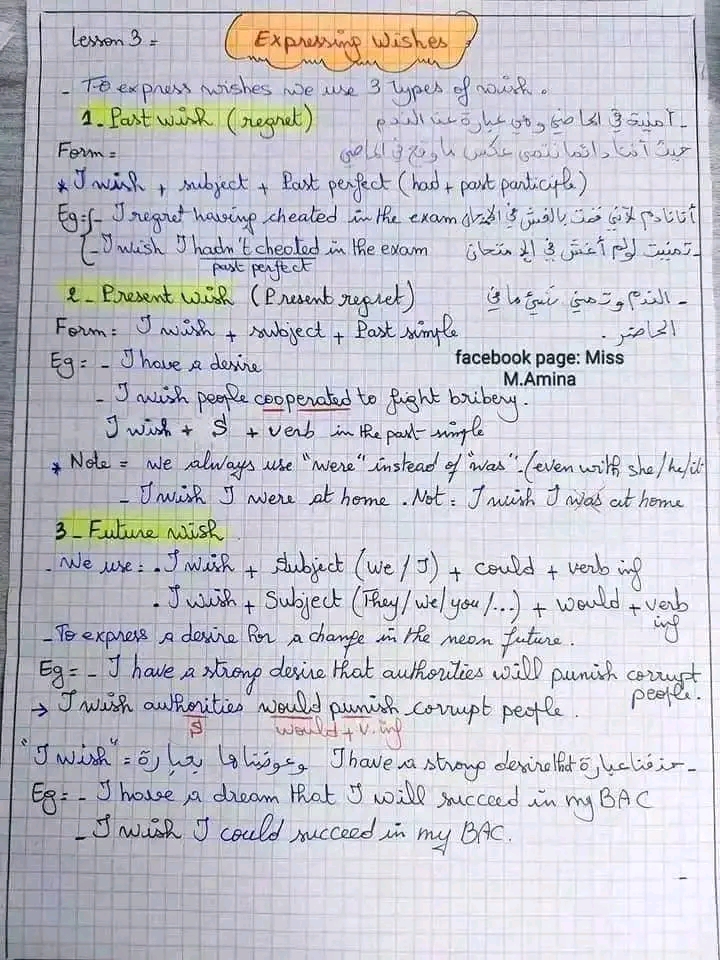 Lesson 3 = Expressing Wishes
- To express wishes we use 3 types of wish.
1. Past wish (regret) - أمنية في الماضي وهي عبارة عن الندم
Form = حيث أننا دائما نتمنى عكس ما وقع في الماضي
* I wish + subject + Past perfect (had + past participle)
Eg: - I regret having cheated in the exam أنا نادم لأنني قمت بالغش في الإمتحان
- I wish I hadn't cheated in the exam - تمنيت لو لم أغش في الإمتحان
past perfect
2 - Present wish (Present regret) - الندم وتمني شيئ ما في
Form = I wish + subject + Past simple الحاضر .
Eg = - I have a desire
facebook page: Miss
M.Amina
- I wish people cooperated to fight bribery.
I wish + S + verb in the past simple
* Note = we always use "were" instead of "was". (even with she/he/it
- I wish I were at home . Not : I wish I was at home
3 - Future wish
- We use : . I wish + Subject (we / I) + could + verb inf
. I wish + Subject (They/we/you/...) + would + verb
inf
- To express a desire for a change in the near future.
Eg = - I have a strong desire that authorities will punish corrupt
people.
→ I wish authorities would punish corrupt people.
S would + v. inf
- حذفنا عبارة I have a strong desire that وعوضناها بعبارة = "I wish"
Eg = - I have a dream that I will succeed in my BAC
- I wish I could succeed in my BAC.